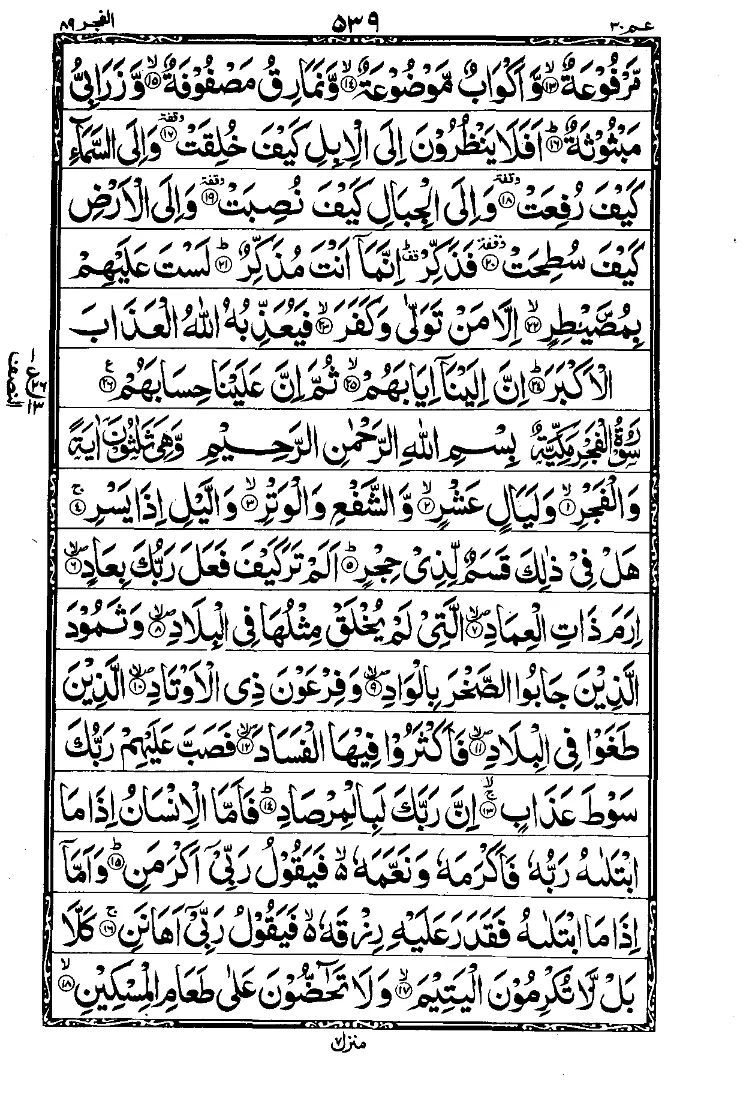 عم ۳۰ ۵۳۹ الفجر ۸۹
مَّرْفُوْعَةٌ ۙ﴿۱۳﴾ وَّاَكْوَابٌ مَّوْضُوْعَةٌ ۙ﴿۱۴﴾ وَّنَمَارِقُ مَصْفُوْفَةٌ ۙ﴿۱۵﴾ وَّزَرَابِیُّ
مَبْثُوْثَةٌ ؕ﴿۱۶﴾ اَفَلَا یَنْظُرُوْنَ اِلَی الْاِبِلِ كَیْفَ خُلِقَتْ ۥ وقفة ﴿۱۷﴾ وَاِلَی السَّمَآءِ
كَیْفَ رُفِعَتْ ۥ وقفة ﴿۱۸﴾ وَاِلَی الْجِبَالِ كَیْفَ نُصِبَتْ ۥ وقفة ﴿۱۹﴾ وَاِلَی الْاَرْضِ
كَیْفَ سُطِحَتْ ۥ وقفة ﴿۲۰﴾ فَذَكِّرْ ؕ قف اِنَّمَاۤ اَنْتَ مُذَكِّرٌ ؕ﴿۲۱﴾ لَسْتَ عَلَیْهِمْ
بِمُصَۜیْطِرٍ ۙ﴿۲۲﴾ اِلَّا مَنْ تَوَلّٰی وَكَفَرَ ۙ﴿۲۳﴾ فَیُعَذِّبُهُ اللّٰهُ الْعَذَابَ
الْاَكْبَرَ ؕ﴿۲۴﴾ اِنَّ اِلَیْنَاۤ اِیَابَهُمْ ۙ﴿۲۵﴾ ثُمَّ اِنَّ عَلَیْنَا حِسَابَهُمْ ﴿۲۶﴾ ع
سُوْرَةُ الْفَجْرِ مَكِّیَّةٌ بِسْمِ اللّٰهِ الرَّحْمٰنِ الرَّحِیْمِ وَّهِیَ ثَلٰثُوْنَ اٰیَةً
وَالْفَجْرِ ۙ﴿۱﴾ وَلَیَالٍ عَشْرٍ ۙ﴿۲﴾ وَّالشَّفْعِ وَالْوَتْرِ ۙ﴿۳﴾ وَالَّیْلِ اِذَا یَسْرِ ۚ﴿۴﴾
هَلْ فِیْ ذٰلِكَ قَسَمٌ لِّذِیْ حِجْرٍ ؕ﴿۵﴾ اَلَمْ تَرَ كَیْفَ فَعَلَ رَبُّكَ بِعَادٍ ۪ۙ﴿۶﴾
اِرَمَ ذَاتِ الْعِمَادِ ۪ۙ﴿۷﴾ الَّتِیْ لَمْ یُخْلَقْ مِثْلُهَا فِی الْبِلَادِ ۪ۙ﴿۸﴾ وَثَمُوْدَ
الَّذِیْنَ جَابُوا الصَّخْرَ بِالْوَادِ ۪ۙ﴿۹﴾ وَفِرْعَوْنَ ذِی الْاَوْتَادِ ۪ۙ﴿۱۰﴾ الَّذِیْنَ
طَغَوْا فِی الْبِلَادِ ۪ۙ﴿۱۱﴾ فَاَكْثَرُوْا فِیْهَا الْفَسَادَ ۪ۙ﴿۱۲﴾ فَصَبَّ عَلَیْهِمْ رَبُّكَ
سَوْطَ عَذَابٍ ۚۙ﴿۱۳﴾ اِنَّ رَبَّكَ لَبِالْمِرْصَادِ ؕ﴿۱۴﴾ فَاَمَّا الْاِنْسَانُ اِذَا مَا
ابْتَلٰىهُ رَبُّهٗ فَاَكْرَمَهٗ وَنَعَّمَهٗ ۬ۙ فَیَقُوْلُ رَبِّیْۤ اَكْرَمَنِ ؕ﴿۱۵﴾ وَاَمَّاۤ
اِذَا مَا ابْتَلٰىهُ فَقَدَرَ عَلَیْهِ رِزْقَهٗ ۬ۙ فَیَقُوْلُ رَبِّیْۤ اَهَانَنِ ۚ﴿۱۶﴾ كَلَّا
بَلْ لَّا تُكْرِمُوْنَ الْیَتِیْمَ ۙ﴿۱۷﴾ وَلَا تَحٰٓضُّوْنَ عَلٰی طَعَامِ الْمِسْكِیْنِ ۙ﴿۱۸﴾
النصف
منزل ۷